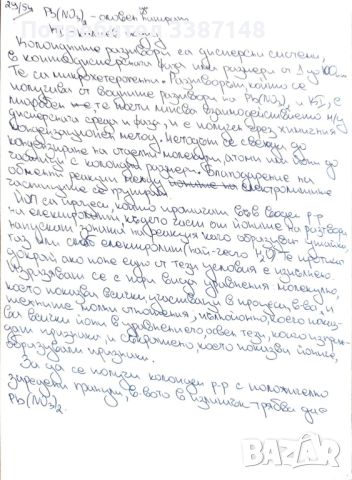 Pb(NO₃)₂ - оловен нитрат
Колоидните разтвори са дисперсни системи,
в които дисперсната фаза има размери от 1 до 100
Те са микрохетерогенни. Разтворът, който се
получава от водните разтвори на Pb(NO₃)₂ и KI, е
лиофобен, т.е. почти липсва взаимодействието м/у
дисперсната среда и фаза, и е получен чрез химичния
кондензационен метод. Методът се свежда до
кондензиране на отделни молекули, атоми или йони до
частици с колоидни размери. Благодарение на
обменна реакция между електролитите
частиците се групират.
ЙОП са процеси, които протичат във водни р-ри
на електролити, където част от йоните на разтвора
напускат зоната на реакция като образуват утайка,
газ или слаб електролит (най-често H₂O). Те протичат
докрай, ако поне едно от тези условия е изпълнено.
Изразяват се с три вида уравнения: молекулно,
което показва всички участващи в процеса в-ва, и
техните молни отношения, йонно, което показ-
ва всички йони в уравнението, освен тези, които изгра-
ждат продукти, и съкратено, което показва йоните,
образували продукти.
За да се получи колоиден р-р с положително
заредени гранули, в-вото в излишък трябва да е
Pb(NO₃)₂.
Bazar